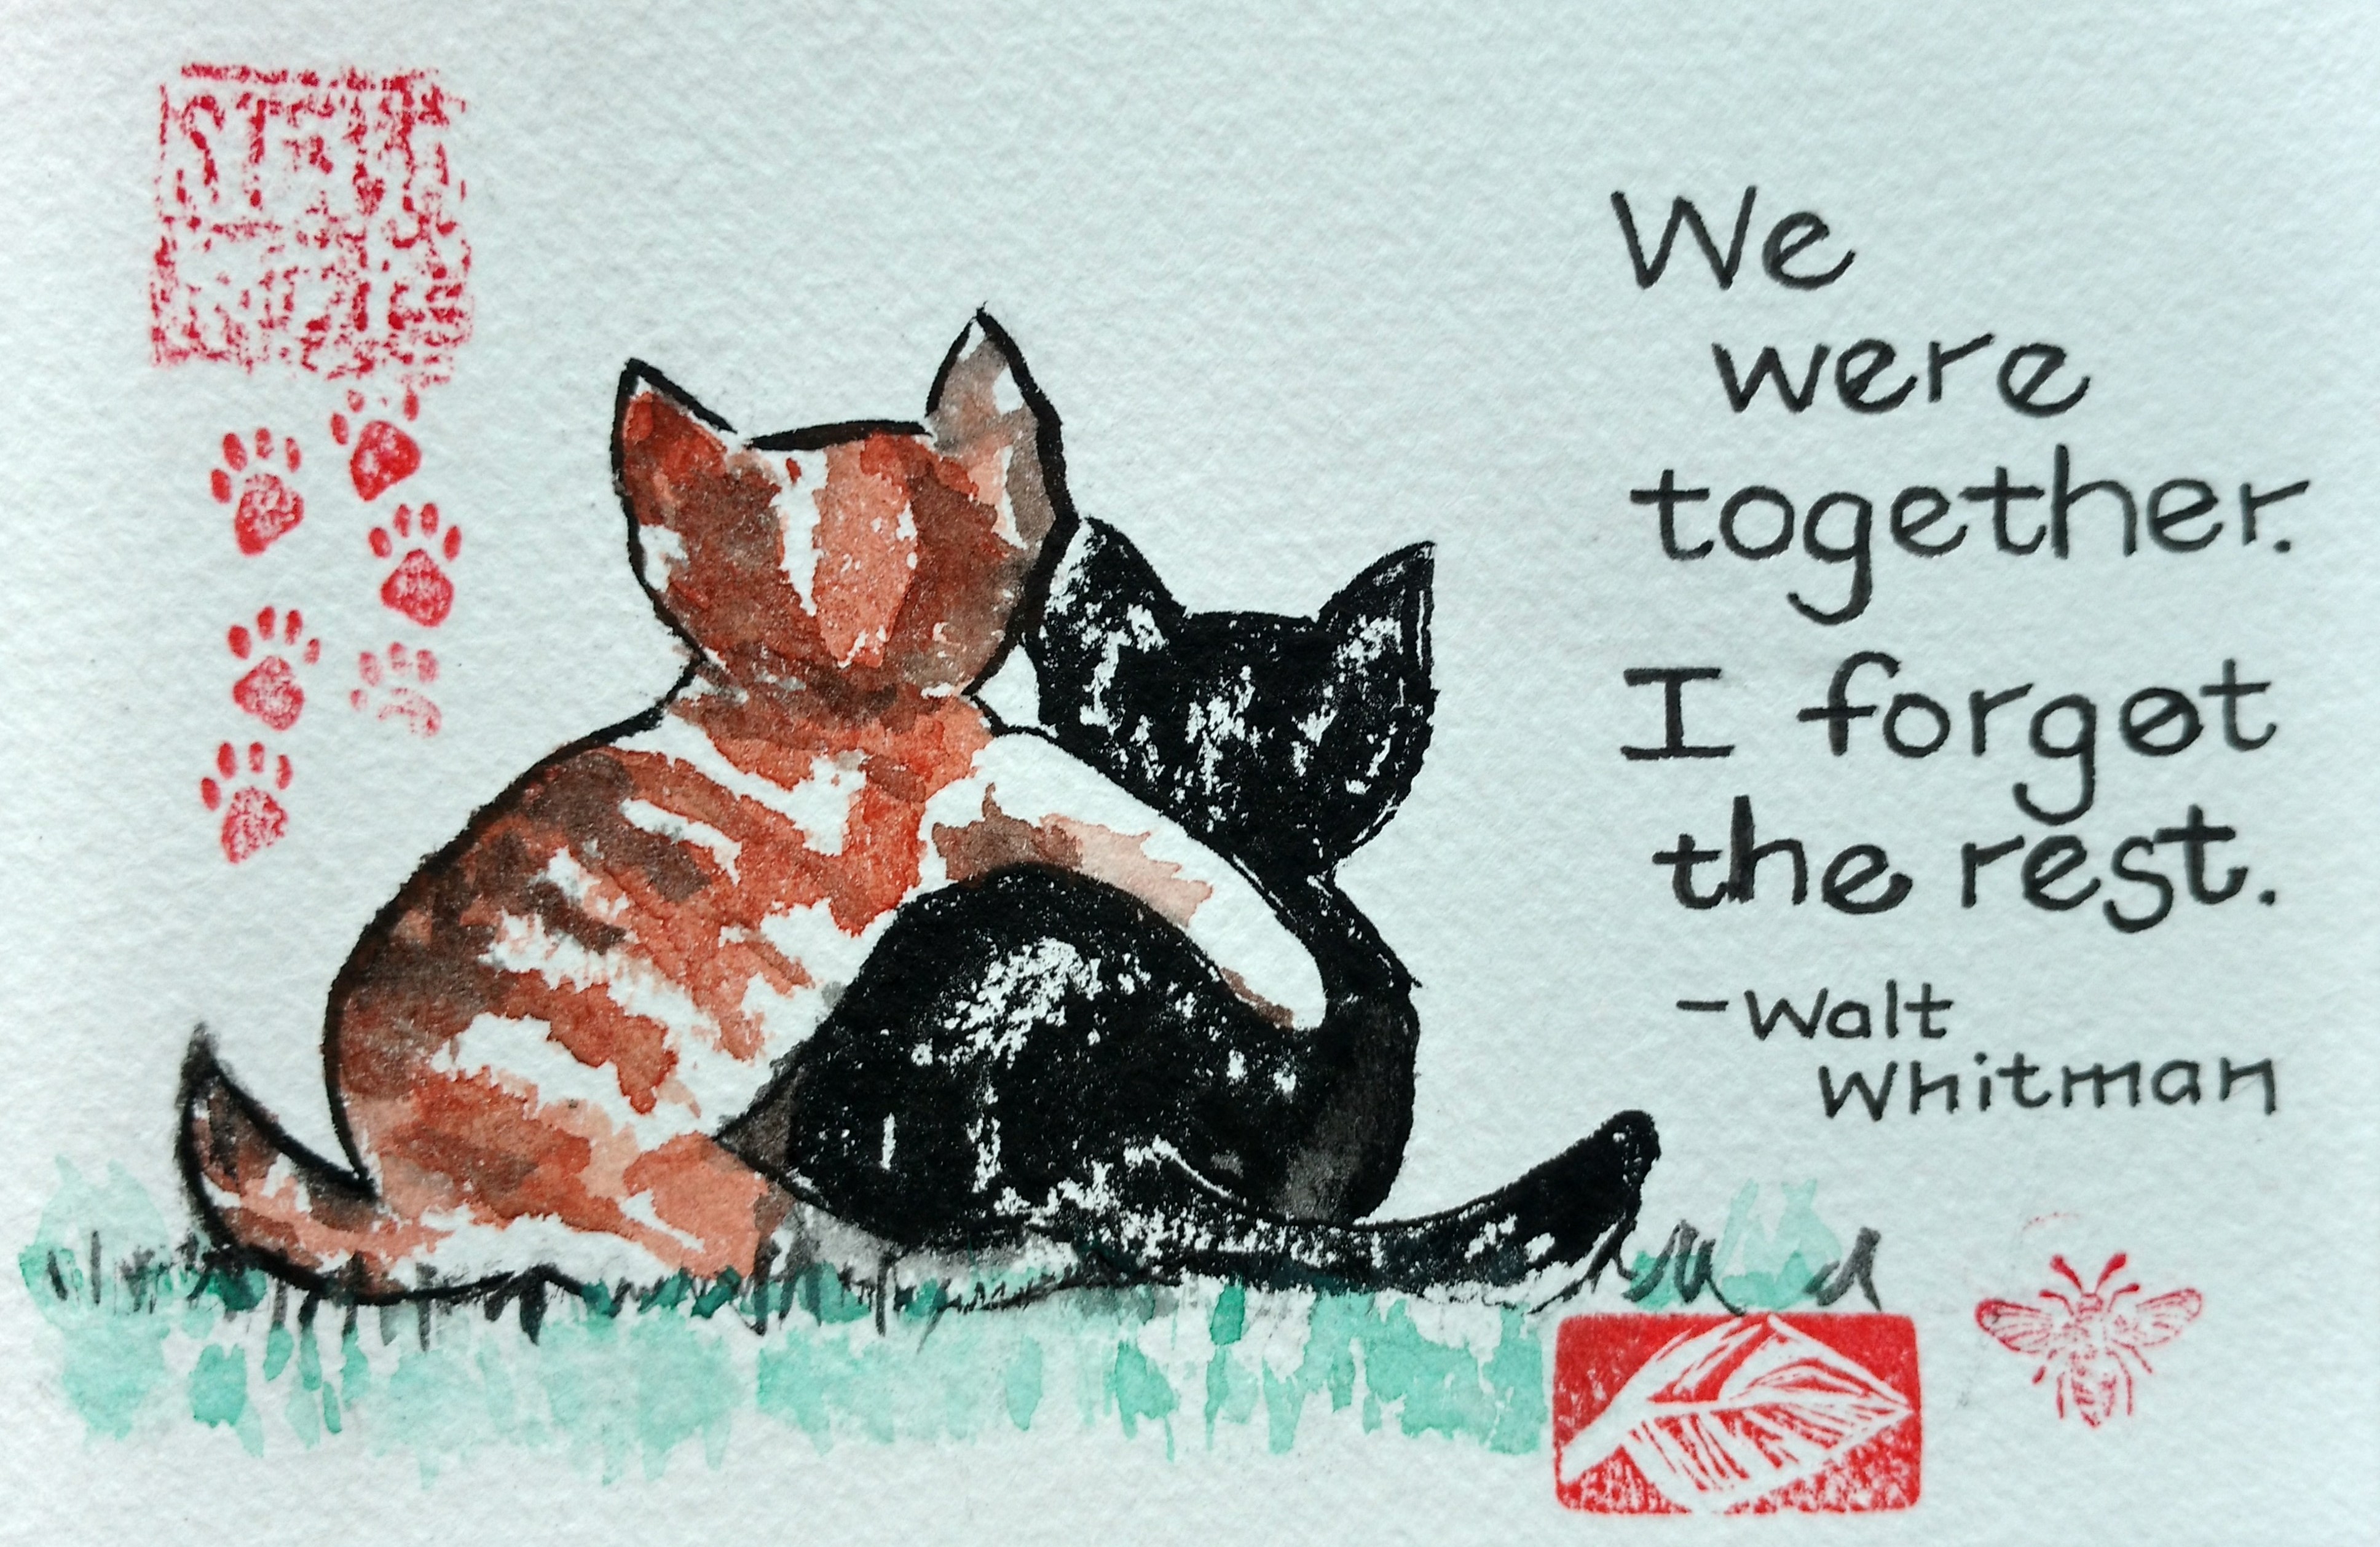 We
were
together.
I forgot
the rest.
-Walt
Whitman